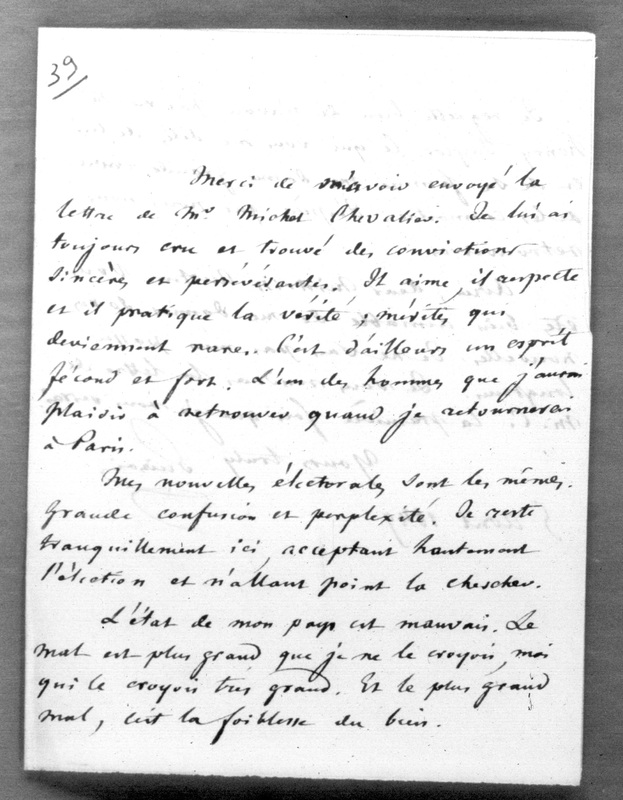 39
Merci de m'avoir envoyé la
lettre de Mr Michel Chevalier. Je lui ai
toujours cru et trouvé des convictions
sincères et persévérantes. Il aime, il respecte
et il pratique la vérité ; mérites qui
deviennent rares. C'est d'ailleurs un esprit
fécond et fort. L'un des hommes que j'aurai
plaisir à retrouver quand je retournerai
à Paris.
Mes nouvelles électorales sont les mêmes.
Grande confusion et perplexité. Je reste
tranquillement ici, acceptant hautement
l'élection et n'allant point la chercher.
L'état de mon pays est mauvais. Le
mal est plus grand que je ne le croyois, moi
qui le croyois très grand. Et le plus grand
mal, c'est la foiblesse du bien.